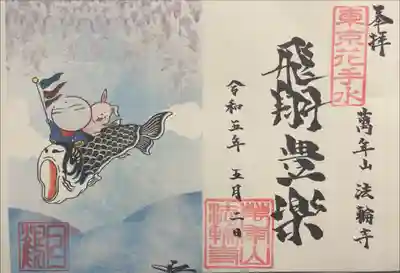 奉拝
東京花手水
萬年山 法輪寺
飛翔豊楽
令和五年 五月二日
萬年山
法輪寺